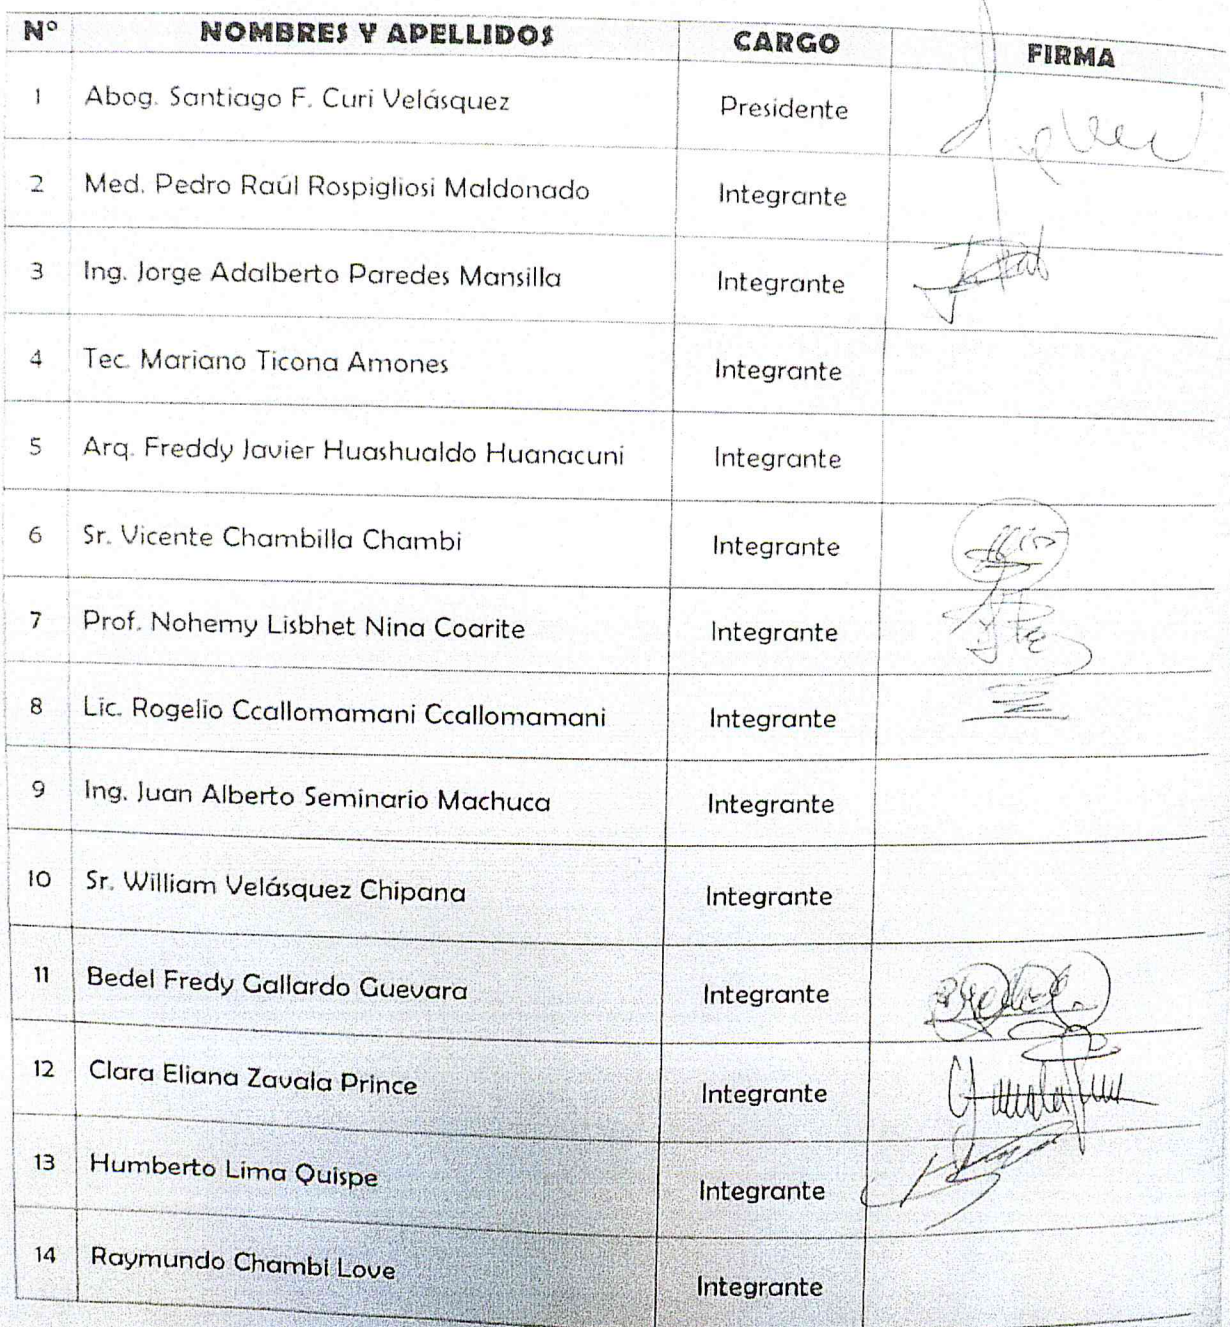 N° NOMBRES Y APELLIDOS CARGO FIRMA
1 Abog. Santiago F. Curi Velásquez Presidente
2 Med. Pedro Raúl Rospigliosi Maldonado Integrante
3 Ing. Jorge Adalberto Paredes Mansilla Integrante
4 Tec. Mariano Ticona Amones Integrante
5 Arq. Freddy Javier Huashualdo Huanacuni Integrante
6 Sr. Vicente Chambilla Chambi Integrante
7 Prof. Nohemy Lisbhet Nina Coarite Integrante
8 Lic. Rogelio Ccallomamani Ccallomamani Integrante
9 Ing. Juan Alberto Seminario Machuca Integrante
10 Sr. William Velásquez Chipana Integrante
11 Bedel Fredy Gallardo Guevara Integrante
12 Clara Eliana Zavala Prince Integrante
13 Humberto Lima Quispe Integrante
14 Raymundo Chambi Love Integrante